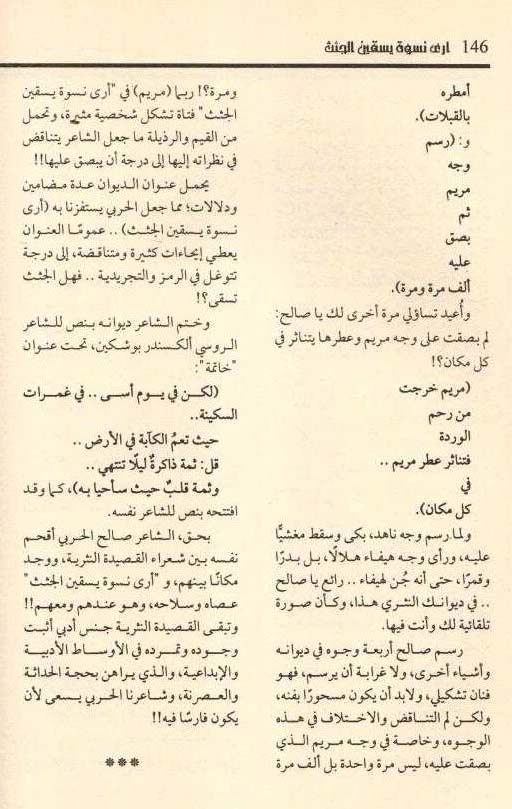 146 أرى نسوة يسقين الجثث
أمطره
بالقبلات).
و: (رسم
وجه
مريم
ثم
بصق
عليه
ألف مرة ومرة).
وأُعيد تساؤلي مرة أخرى لك يا صالح:
لم بصقت على وجه مريم وعطرها يتناثر في
كل مكان؟!
(مريم خرجت
من رحم
الوردة
فتناثر عطر مريم ..
في
كل مكان).
ولما رسم وجه ناهد، بكى وسقط مغشيًّا
عليه، ورأى وجه هيفاء هلالًا، بل بدرًا
وقمرًا، حتى أنه جُن لهيفاء .. رائع يا صالح
.. في ديوانك النثري هذا، وكأن صورة
تلقائية لك وأنت فيها.
رسم صالح أربعة وجوه في ديوانه
وأشياء أخرى، ولا غرابة أن يرسم، فهو
فنان تشكيلي، ولابد أن يكون مسحورًا بفنه،
ولكن لم التناقض والاختلاف في هذه
الوجوه، وخاصة في وجه مريم الذي
بصقت عليه، ليس مرة واحدة بل ألف مرة
ومرة؟! ربما (مريم) في "أرى نسوة يسقين
الجثث" فتاة تشكل شخصية مثيرة، وتحمل
من القيم والرذيلة ما جعل الشاعر يتناقض
في نظراته إليها إلى درجة أن يبصق عليها!!
يحمل عنوان الديوان عدة مضامين
ودلالات؛ مما جعل الحربي يستفزنا به (أرى
نسوة يسقين الجثث) .. عمومًا العنوان
يعطي إيحاءات كثيرة ومتناقضة، إلى درجة
تتوغل في الرمز والتجريدية .. فهل الجثث
تسقى؟!
وختم الشاعر ديوانه بنص للشاعر
الروسي ألكسندر بوشكين، تحت عنوان
"خاتمة":
(لكن في يوم أسى .. في غمرات
السكينة..
حيث تعمُ الكآبة في الأرض ..
قل: ثمة ذاكرةٌ ليلًا تنتهي ..
وثمة قلبٌ حيث سأحيا به)، كما وقد
افتتحه بنص للشاعر نفسه.
بحق، الشاعر صالح الحربي أقحم
نفسه بين شعراء القصيدة النثرية، ووجد
مكانًا بينهم، و "أرى نسوة يسقين الجثث"
عصاه وسلاحه، وهو عندهم ومعهم!!
وتبقى القصيدة النثرية جنس أدبي أثبت
وجوده وتمرده في الأوساط الأدبية
والإبداعية، والذي يراهن بحجة الحداثة
والعصرنة، وشاعرنا الحربي يسعى لأن
يكون فارسًا فيه!!
***